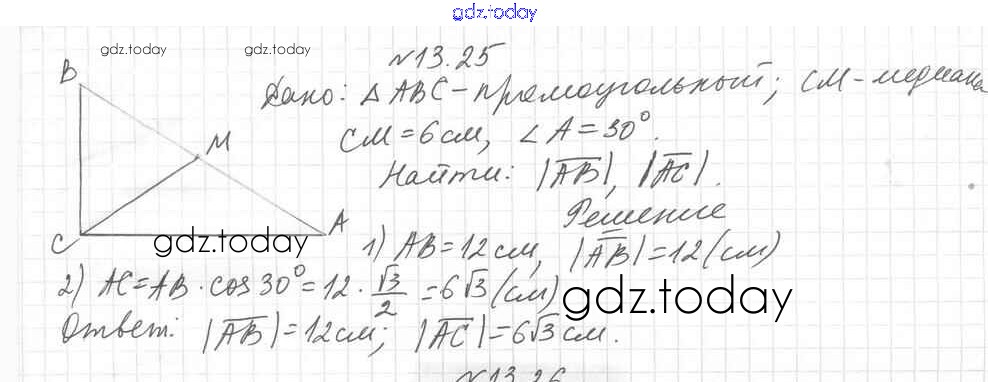 gdz.today
gdz.today gdz.today
№13.25
B
Дано: △ABC - прямоугольный; CM - медиана
CM = 6 см, ∠A = 30°.
M
Найти: |AB|, |AC|.
Решение
C A
gdz.today
1) AB = 12 см, |AB| = 12 (см)
2) AC = AB · cos 30° = 12 · √3/2 = 6√3 (см)
gdz.today
Ответ: |AB| = 12 см; |AC| = 6√3 см.
№13.26